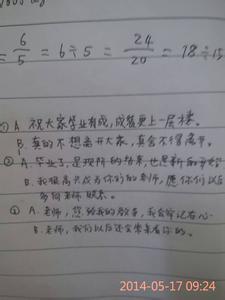 = 6/5 = 6÷5 = 24/20 = 18÷15
① A. 祝大家学业有成,成绩更上一层楼。
B. 真的不想离开大家,真舍不得离开。
② A. 毕业了,是现阶的结束,也是新的开始
B. 我很高兴成为你们的老师,愿你们以后
多向老师联系。
③ A. 老师,您给我的教育,我会牢记在心
B. 老师,我们以后还会常来看你的。
2014-05-17 09:24